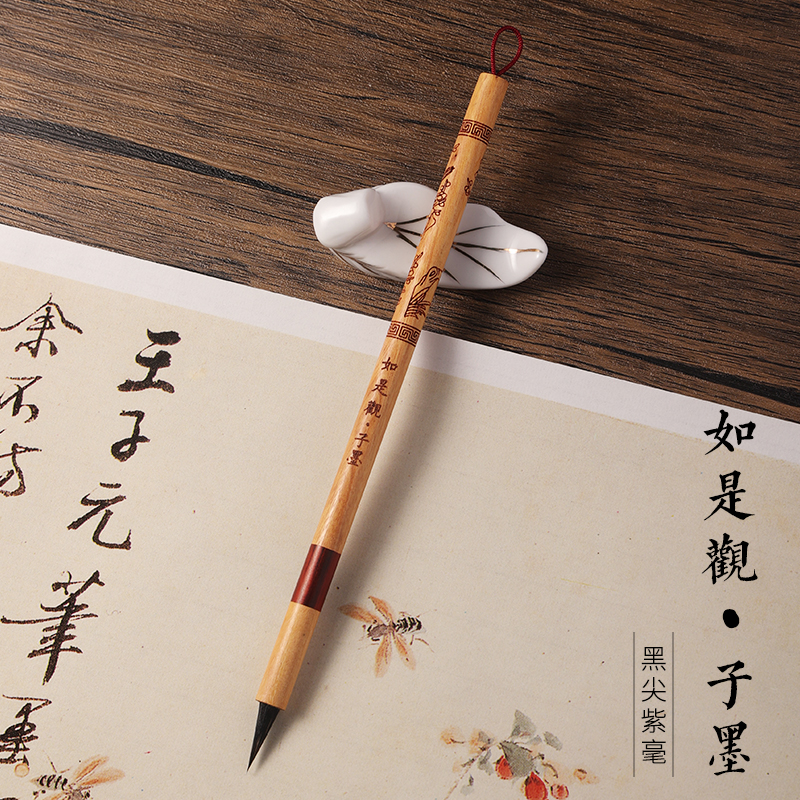 如是觀·子墨
黑尖紫毫
如是觀·子墨
王子元筆墨
余不方